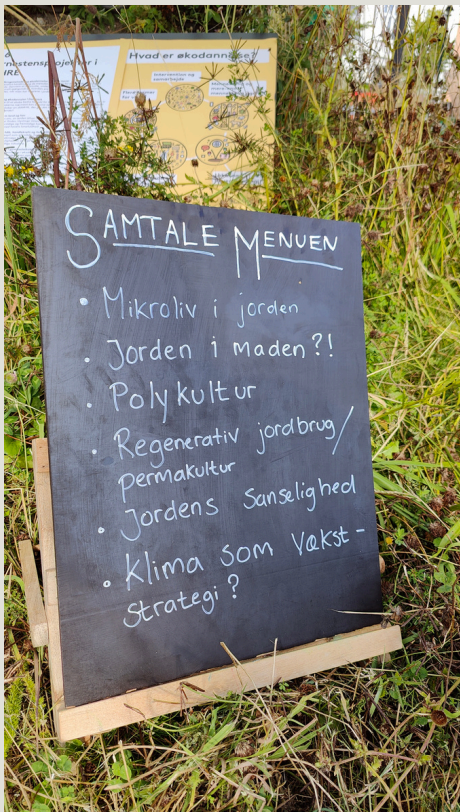 Hvad er økodannelse?
SAMTALE MENUEN
• Mikroliv i jorden
• Jorden i maden?!
• Polykultur
• Regenerativ jordbrug/
permakultur
• Jordens sanselighed
• Klima som vækst-
strategi?